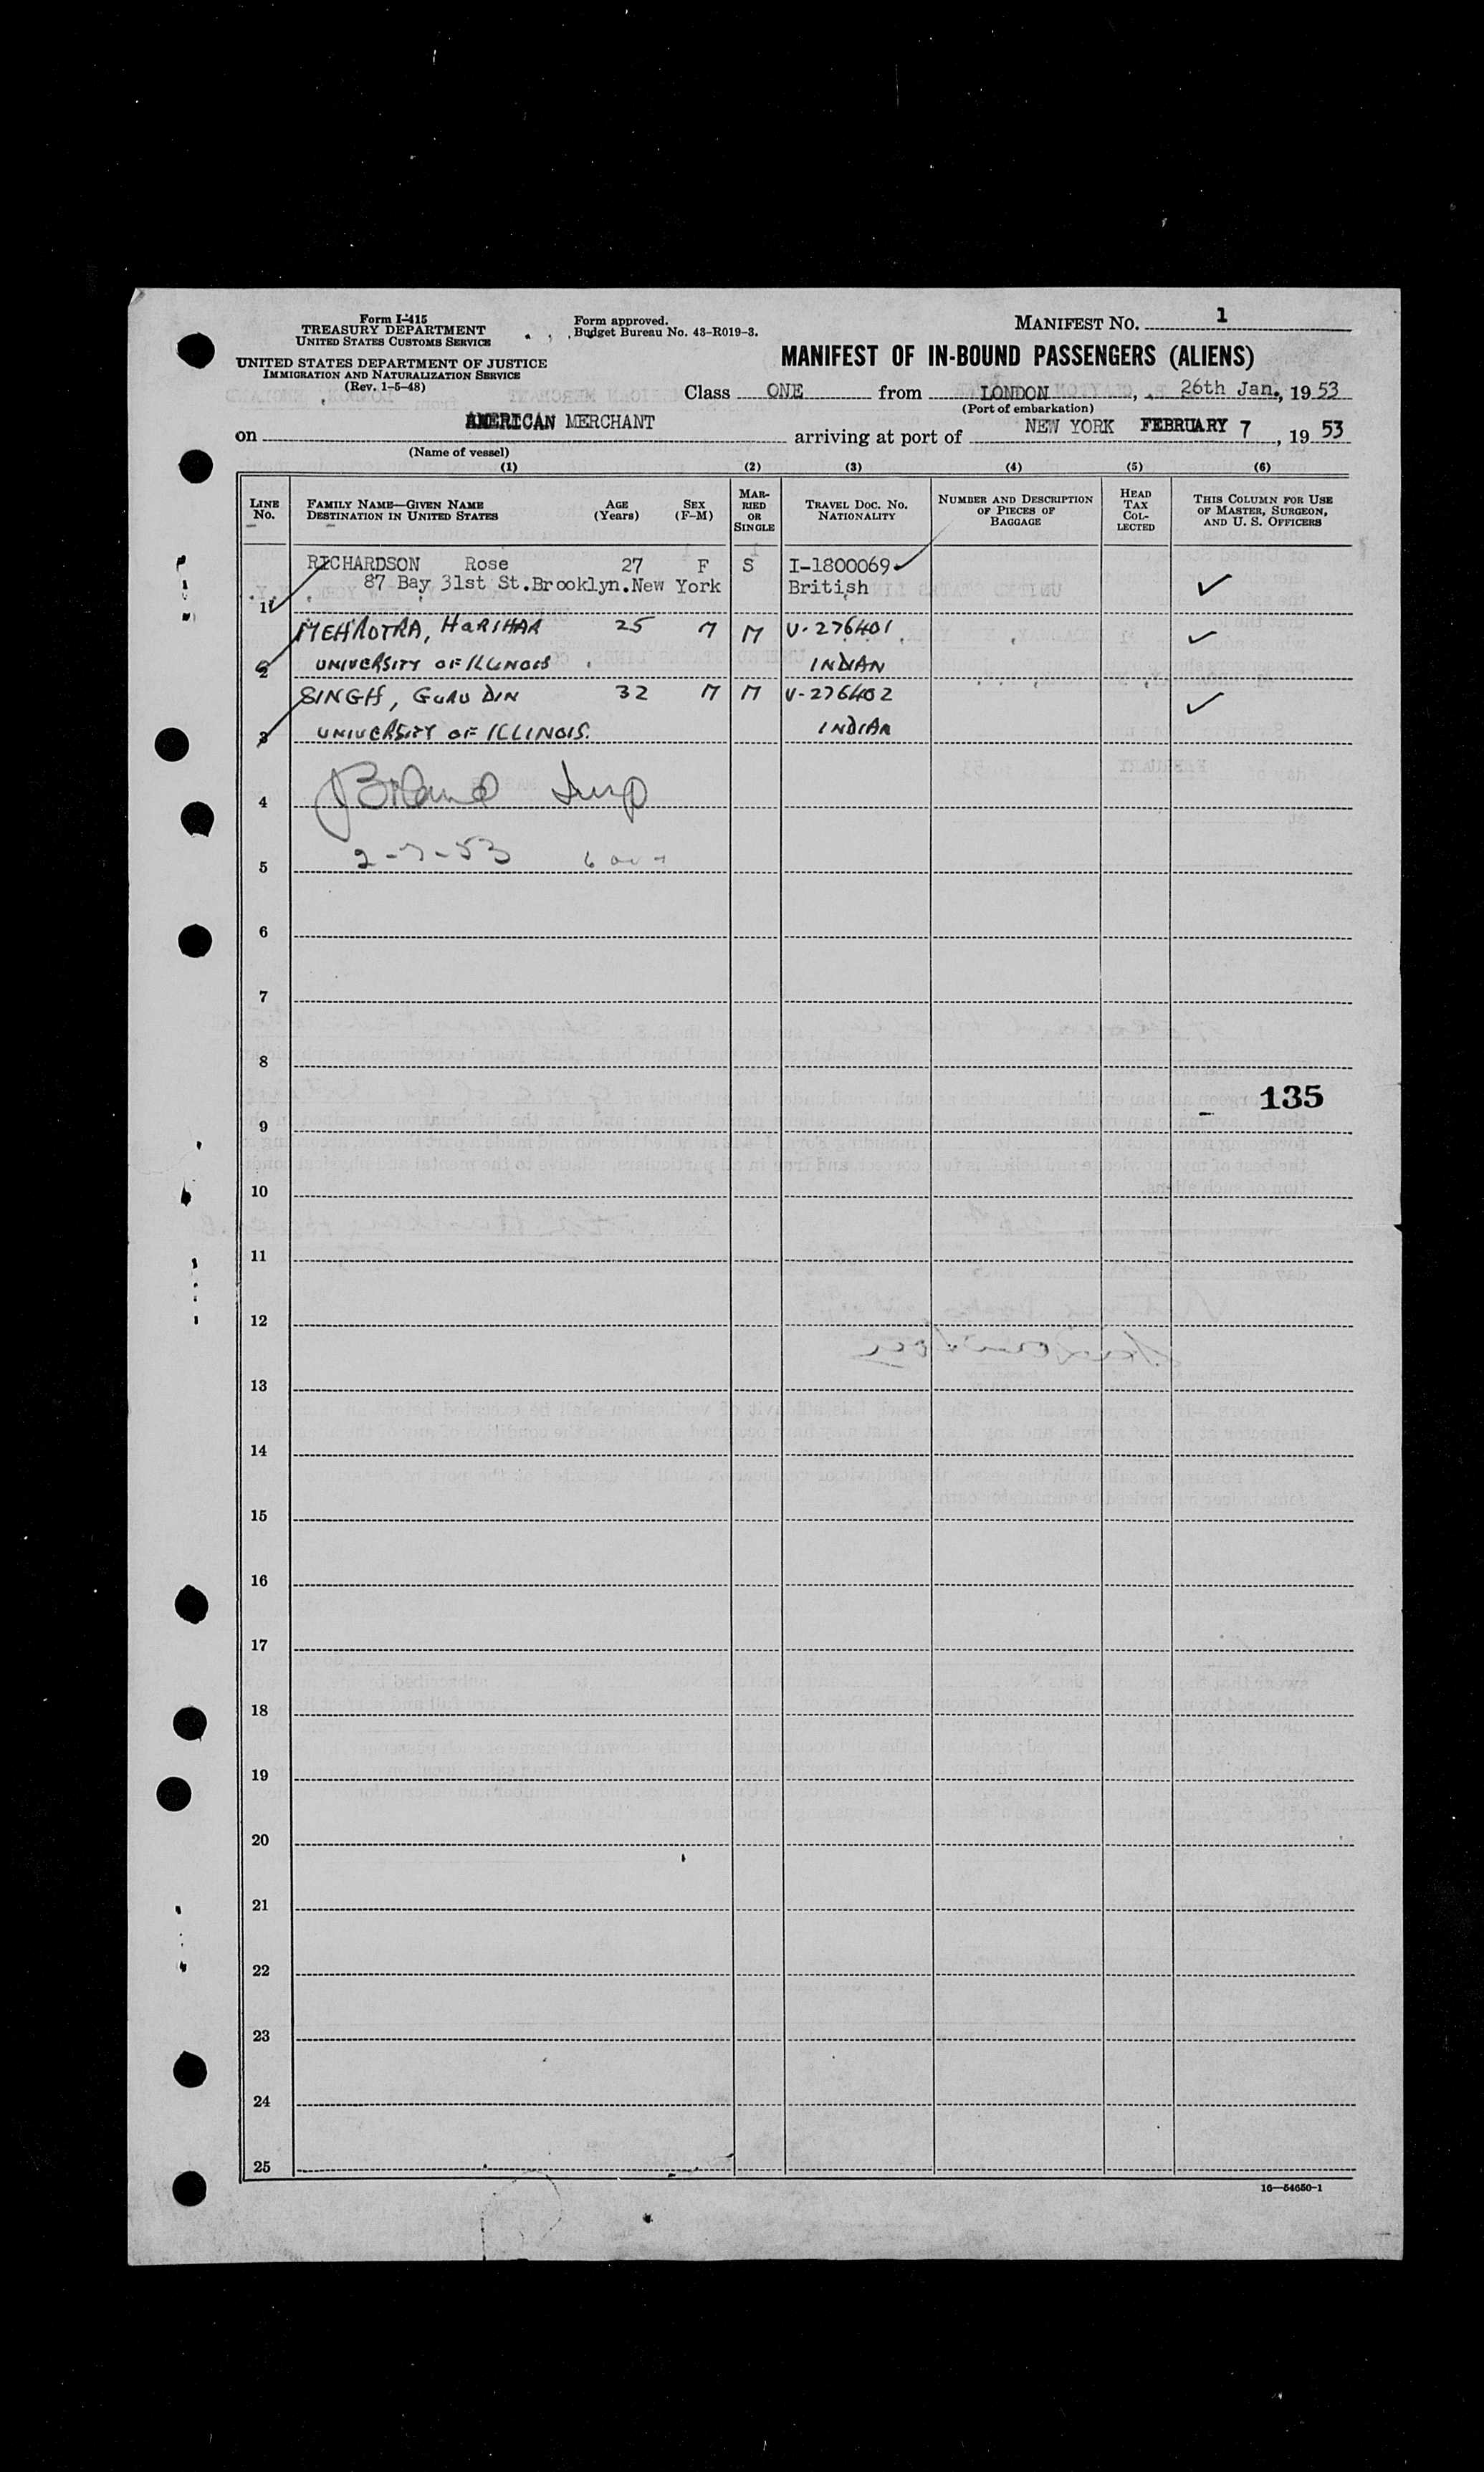 Form I-415
TREASURY DEPARTMENT
UNITED STATES CUSTOMS SERVICE
UNITED STATES DEPARTMENT OF JUSTICE
IMMIGRATION AND NATURALIZATION SERVICE
(Rev. 1-5-48)
Form approved.
Budget Bureau No. 43-R019-3.
MANIFEST NO. 1
MANIFEST OF IN-BOUND PASSENGERS (ALIENS)
Class ONE from LONDON, 26th Jan., 1953
(Port of embarkation)
on AMERICAN MERCHANT arriving at port of NEW YORK FEBRUARY 7, 1953
(Name of vessel)
(1) (2) (3) (4) (5) (6)
LINE No.
FAMILY NAME—GIVEN NAME
DESTINATION IN UNITED STATES
AGE (Years)
SEX (F-M)
MARRIED OR SINGLE
TRAVEL DOC. NO.
NATIONALITY
NUMBER AND DESCRIPTION OF PIECES OF BAGGAGE
HEAD TAX COLLECTED
THIS COLUMN FOR USE OF MASTER, SURGEON, AND U. S. OFFICERS
RICHARDSON Rose 27 F S I-1800069
1 87 Bay 31st St.Brooklyn.New York British
MEHROTRA, HARIHAR 25 M M V-276401
2 UNIVERSITY OF ILLINOIS INDIAN
SINGH, GURU DIN 32 M M V-276402
3 UNIVERSITY OF ILLINOIS. INDIAN
4
2-7-53
5
6
7
8
135
9
10
11
12
13
14
15
16
17
18
19
20
21
22
23
24
25
16—54650-1